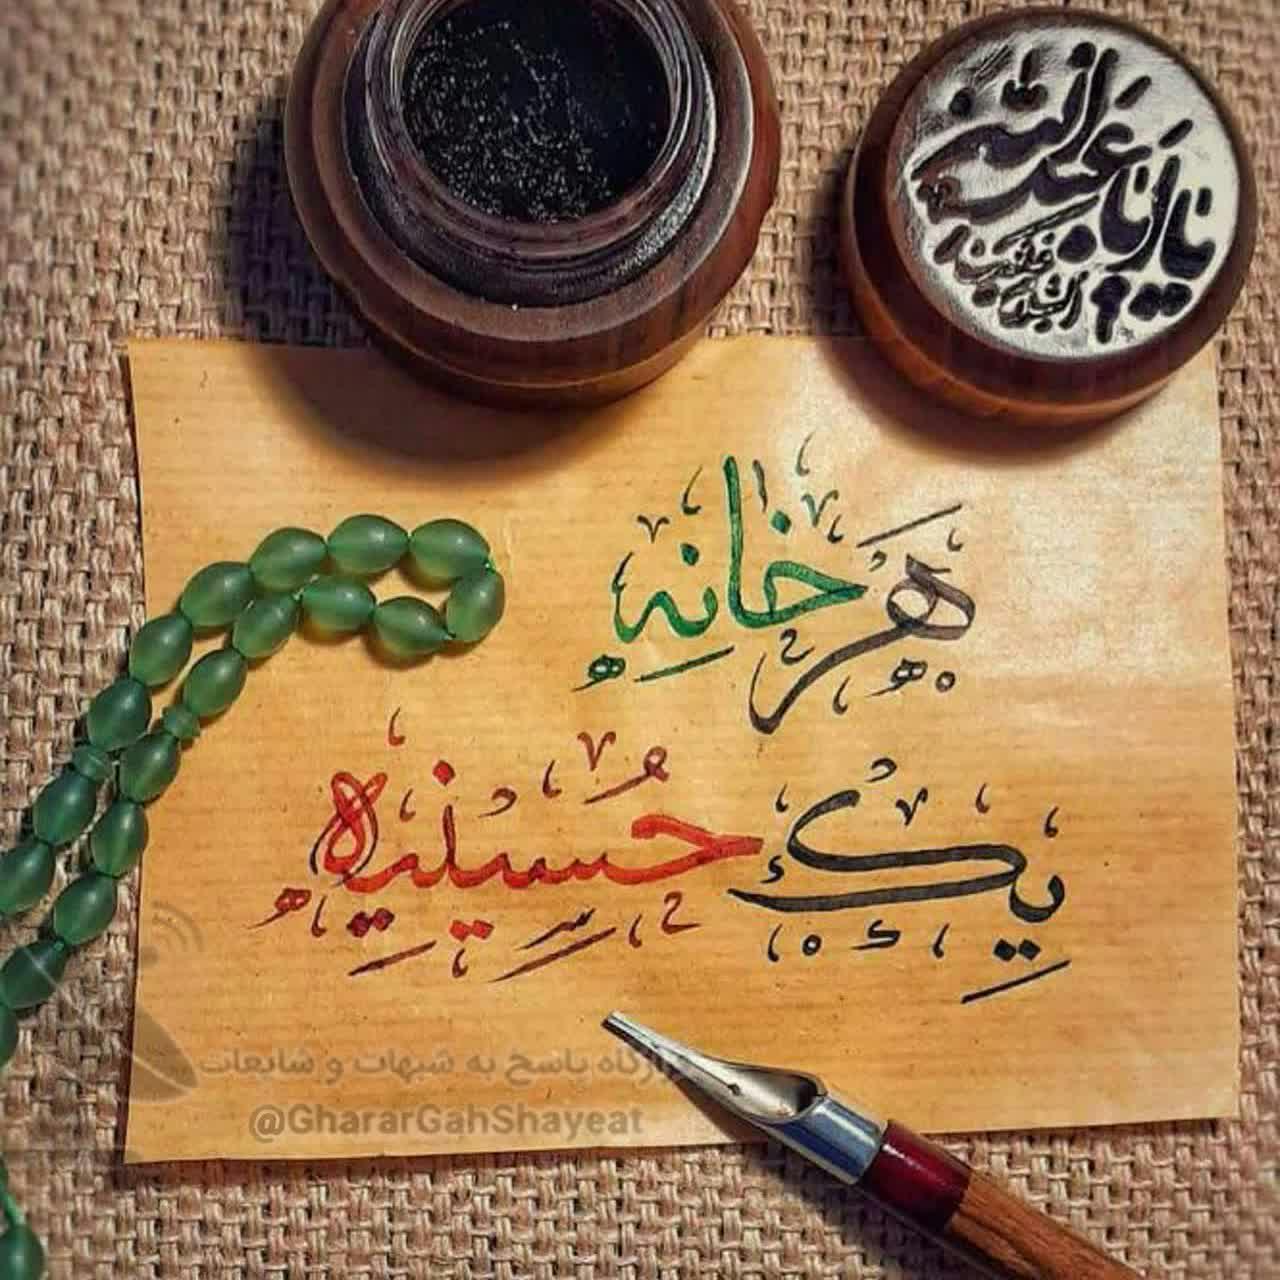 یا اباعبدالله
هر خانه
یک حُسینیه
قرارگاه پاسخ به شبهات و شایعات
@GhararGahShayeat